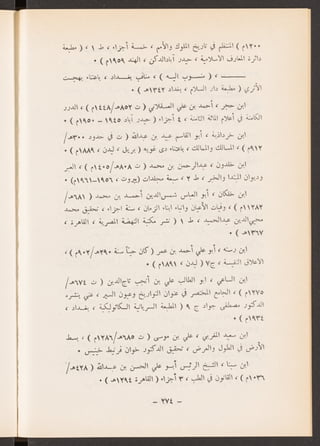 ١٢٠٠م) المنتظم في تاريخ الملوك والأمم ، خمسة أجزاء ، ط ١ ، ( مطبعة
دائرة المعارف الاسلامية ، حيدر آبادالدكن ، الهند ١٩٥٩م) ٠
ــــــــ ، ( منسوب اليه ) ، مناقب بغداد ، باعتناء بهجت
الأثري ( مطبعة دار السلام ، بغداد ١٣٤٢هـ) ٠
ابن حجر ، أحمد بن علي العسقلاني ( ت ٨٥٢هـ/١٤٤٨م) ، الدرر
الكامنة في أعلام المائة الثامنة ، ٤ أجزاء ( حيدر آباد ١٩٤٥ - ١٩٥٠م) ٠
ابن خرداذبة ، أبو القاسم عبيد بن عبدالله ( ت في حدود ٣٠٠هـ/
٩١٢م) ، المسالك والممالك ، باعتناء دي غويه ( بريل ، ليدن ، ١٨٨٩م) ٠
ابن خلدون ، عبدالرحمن بن محمد ( ت ٨٠٨هـ/١٤٠٥م) ، العبر
وديوان المبتدأ والخبر ، ط ٢ ، سبعة مجلدات (بيروت ، ١٩٥٦-١٩٦١م) ٠
ابن خلكان ، أبو العباس شمس‌الدين أحمد بن محمد ( ٦٨١هـ/
١٢٨٢م) ، وفيات الأعيان وانباء ابناء الزمان ، ستة اجزاء ، تحقيق محمد
محيي‌الدين عبدالحميد ، ط ١ ( نشر مكتبة النهضة المصرية ، القاهرة ،
١٣٦٧هـ ٠
ابن رسته ، أبو علي أحمد بن عمر ( كان حياً سنة ٢٩٠هـ/٩٠٢م) ،
الاعلاق النفيسة ، ج٧ ( ليدن ، ١٨٩١م) ٠
ابن الساعي ، ابو الطالب علي بن أنجب تاج‌الدين ( ت ٦٧٤هـ/
١٢٧٥م) ، الجامع المختصر في عنوان التواريخ وعيون السير ، عني بنشره
الدكتور مصطفى جواد ج ٩ ( المطبعة السريانية الكاثوليكية ، بغداد ،
١٩٣٤م) ٠
ابن سعيد المغربي ، علي بن موسى ( ت ٦٨٥هـ/١٢٨٦م) ، بسط
الأرض في الطول والعرض ، تحقيق الدكتور خوان قرنيط خينيس ٠
ابن سينا ، الشيخ الرئيس أبو علي الحسن بن عبدالله ( ٤٢٨هـ/
١٠٣٦م) ، القانون في الطب ، ٣ أجزاء ( القاهرة ١٢٩٤هـ) ٠
- ٢٧٤ -